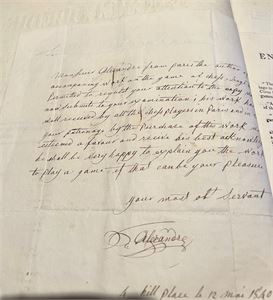 Monsieur Alexandre from Paris the author
accompanying work on the game at chess, begs
Permitted to request your attention to the copy
now submits to your examination; his work has
well received by all the chess Players in Paris and in
your patronage by the Purchase of this work
esteemed a favour and receive his best acknowle
he shall be very happy to explain you the work
to play a game if that can be your Pleasure
your most obt Servant
Alexandre
hill Place le 12 mai 18
EN